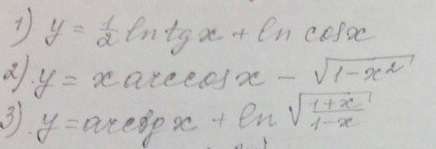 1) y = 1/2 ln tg x + ln cosx
2). y = x arccosx - √(1-x²)
3). y = arctg x + ln √((1+x)/(1-x))